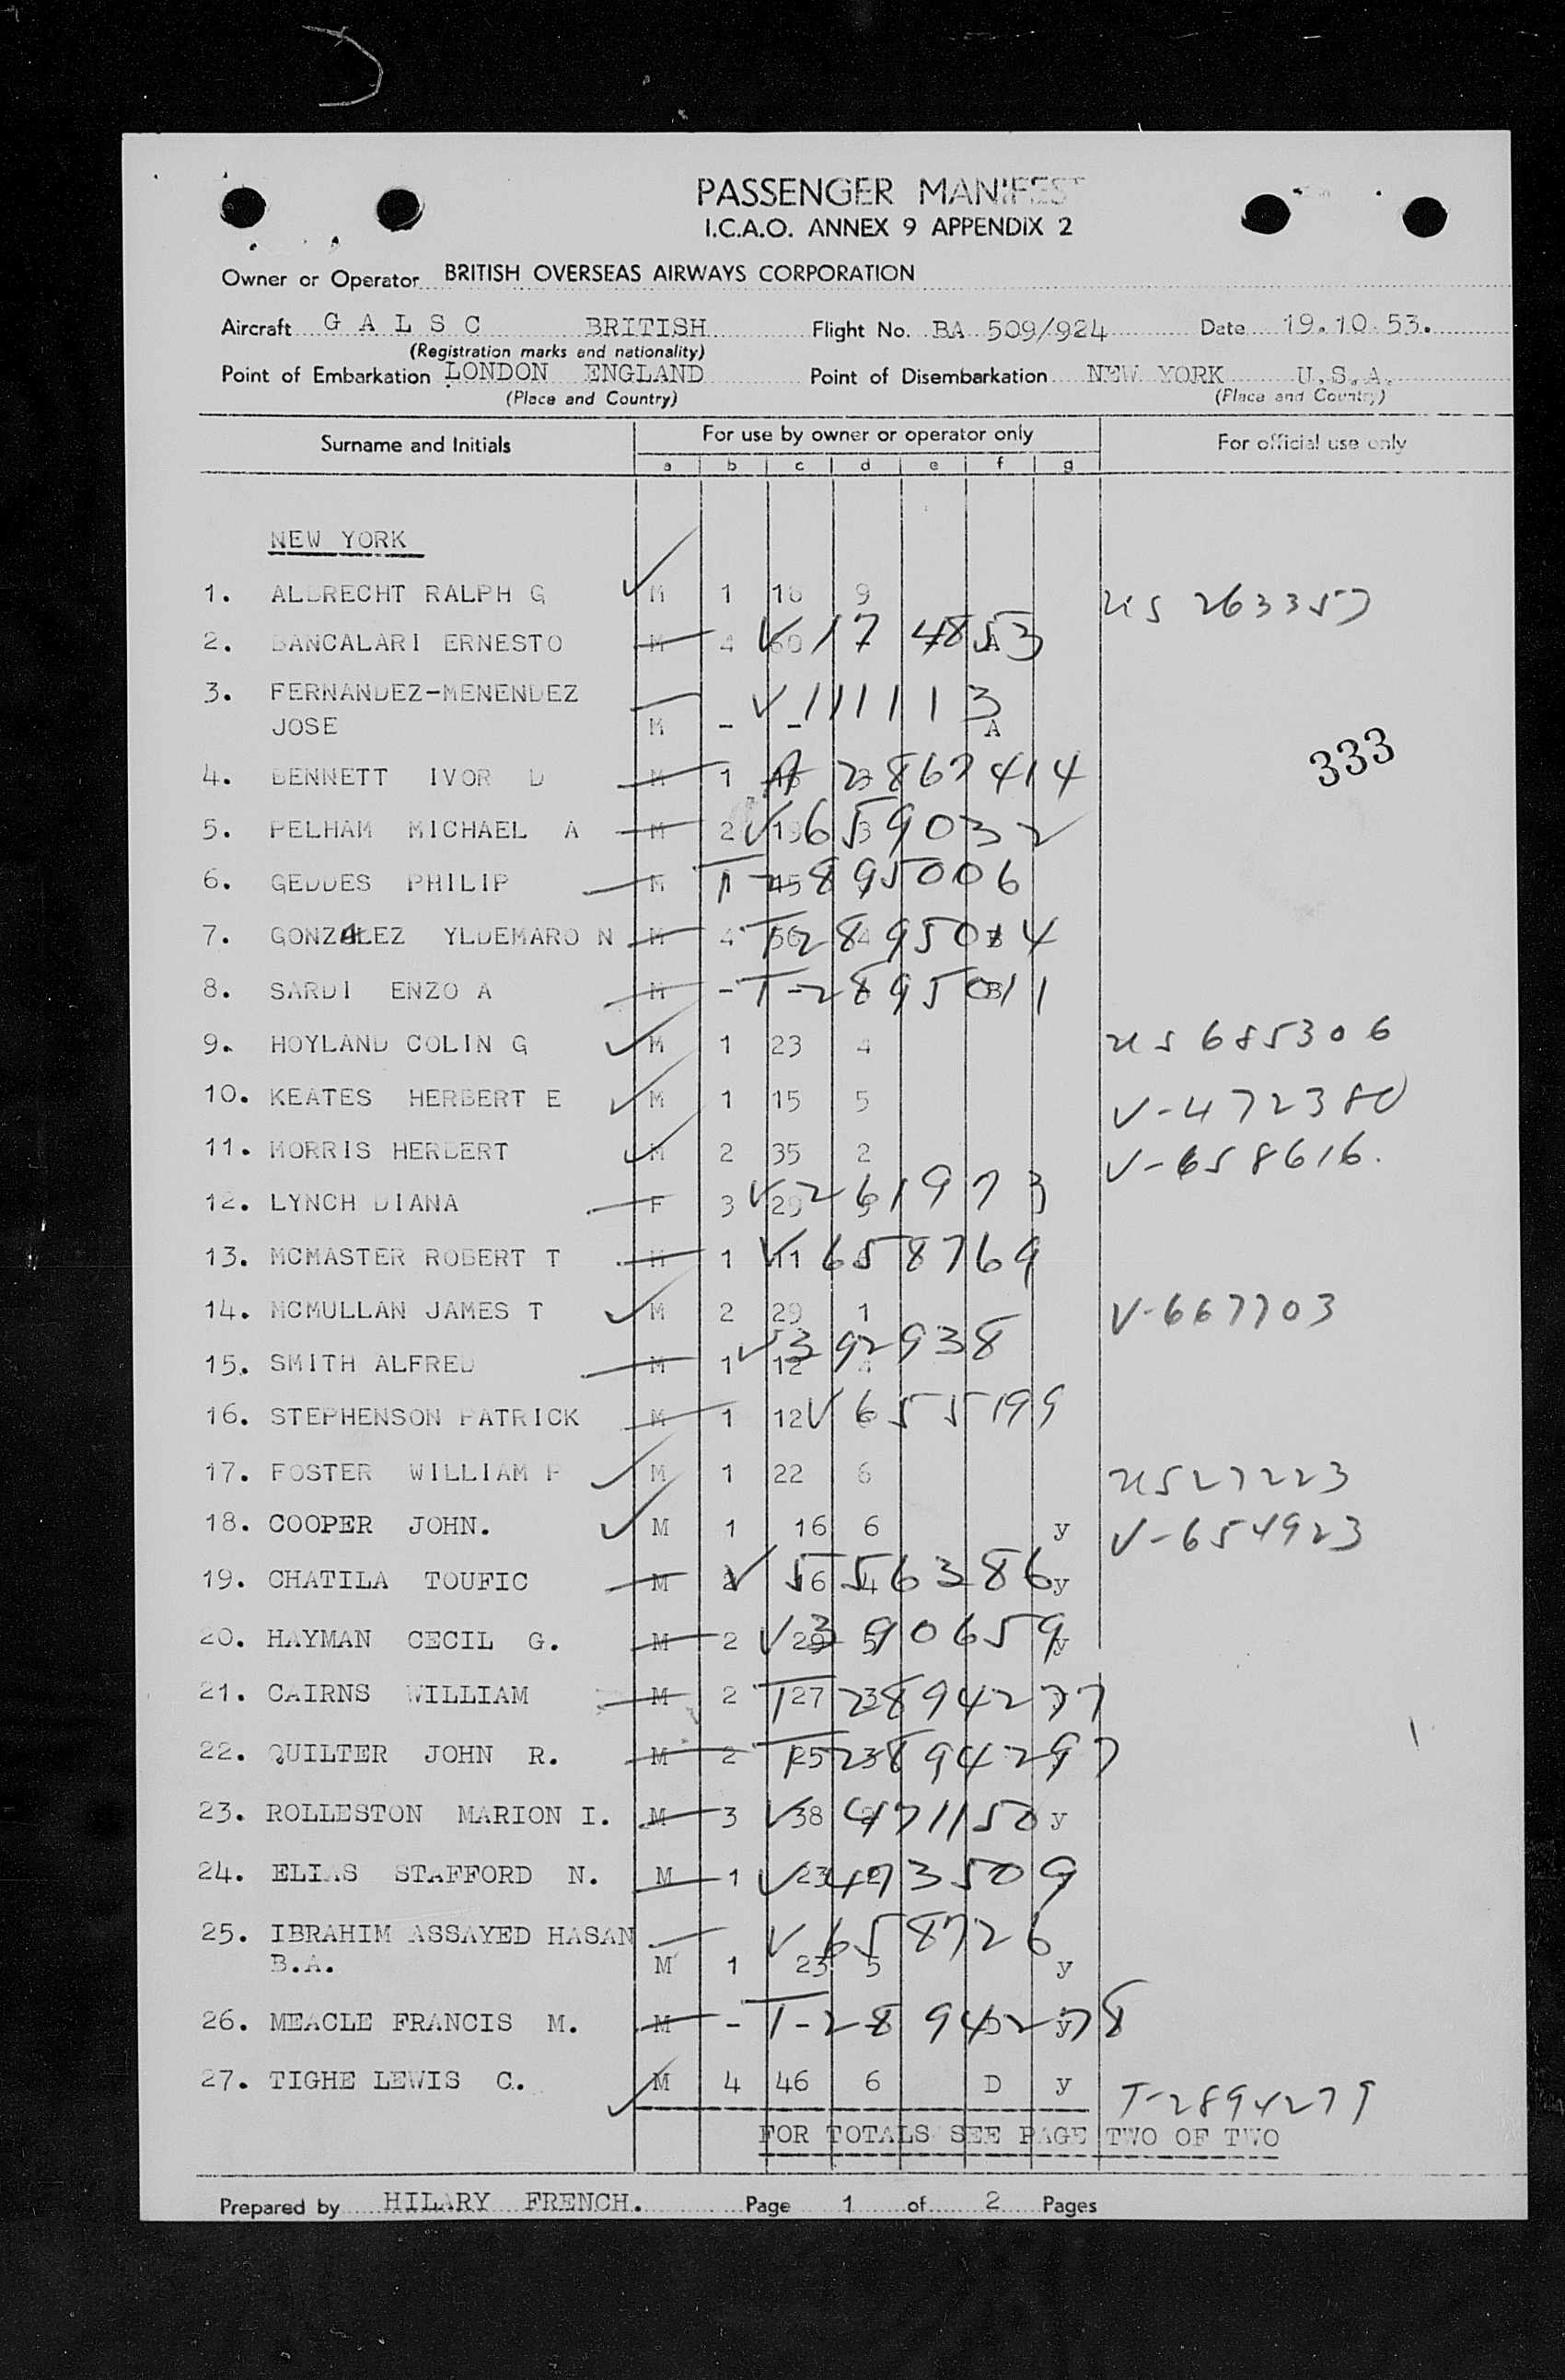 PASSENGER MANIFEST
I.C.A.O. ANNEX 9 APPENDIX 2
Owner or Operator BRITISH OVERSEAS AIRWAYS CORPORATION
Aircraft G A L S C BRITISH Flight No. BA 509/924 Date 19.10.53.
(Registration marks and nationality)
Point of Embarkation LONDON ENGLAND Point of Disembarkation NEW YORK U.S.A.
(Place and Country) (Place and Country)
Surname and Initials For use by owner or operator only For official use only
a b c d e f g
NEW YORK
1. ALBRECHT RALPH G M 1 18 9 US 263357
2. BANCALARI ERNESTO M 4 V 17 4853 A
3. FERNANDEZ-MENENDEZ V 111113
JOSE M - - A
333
4. BENNETT IVOR D M 1 2867414
5. PELHAM MICHAEL A M 2 19 3 V 659032
6. GEDDES PHILIP M 1 45 T-2895006
7. GONZALEZ YLDEMARO N M 4 56 4 T2895014
8. SARDI ENZO A M - - T-2895011 B
9. HOYLAND COLIN G M 1 23 4 US 685306
10. KEATES HERBERT E M 1 15 5 V-472380
11. MORRIS HERBERT M 2 35 2 V-658616.
12. LYNCH DIANA F 3 29 V 261973
13. MCMASTER ROBERT T M 1 11 V 658769
14. MCMULLAN JAMES T M 2 29 1 V-667703
15. SMITH ALFRED M 1 12 4 V 392938
16. STEPHENSON PATRICK M 1 12 V 655199
17. FOSTER WILLIAM P M 1 22 6 US27223
18. COOPER JOHN. M 1 16 6 y V-654923
19. CHATILA TOUFIC M 2 16 4 V 556386 y
20. HAYMAN CECIL G. M 2 29 5 V 390659 y
21. CAIRNS WILLIAM M 2 27 3 T 2894277
22. QUILTER JOHN R. M 2 25 3 T 2894297
23. ROLLESTON MARION I. M 3 38 V 471150 y
24. ELIAS STAFFORD N. M 1 23 V 473509
25. IBRAHIM ASSAYED HASAN V 658726
B.A. M 1 23 5 y
26. MEACLE FRANCIS M. M - - T-2894278 D y
27. TIGHE LEWIS C. M 4 46 6 D y T-2894279
FOR TOTALS SEE PAGE TWO OF TWO
Prepared by HILARY FRENCH. Page 1 of 2 Pages